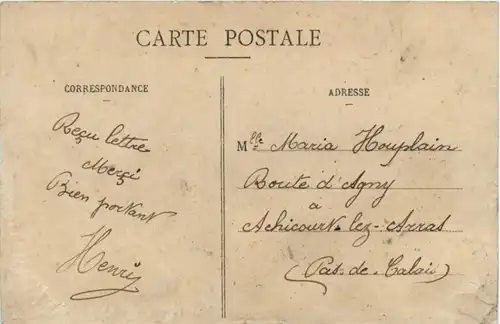 CARTE POSTALE
CORRESPONDANCE
Reçu lettre
Merçi
Bien portant
Henry
ADRESSE
Mlle Maria Houplain
Route d'Agny
à
Achicourt-lez-Arras
(Pas-de-Calais)